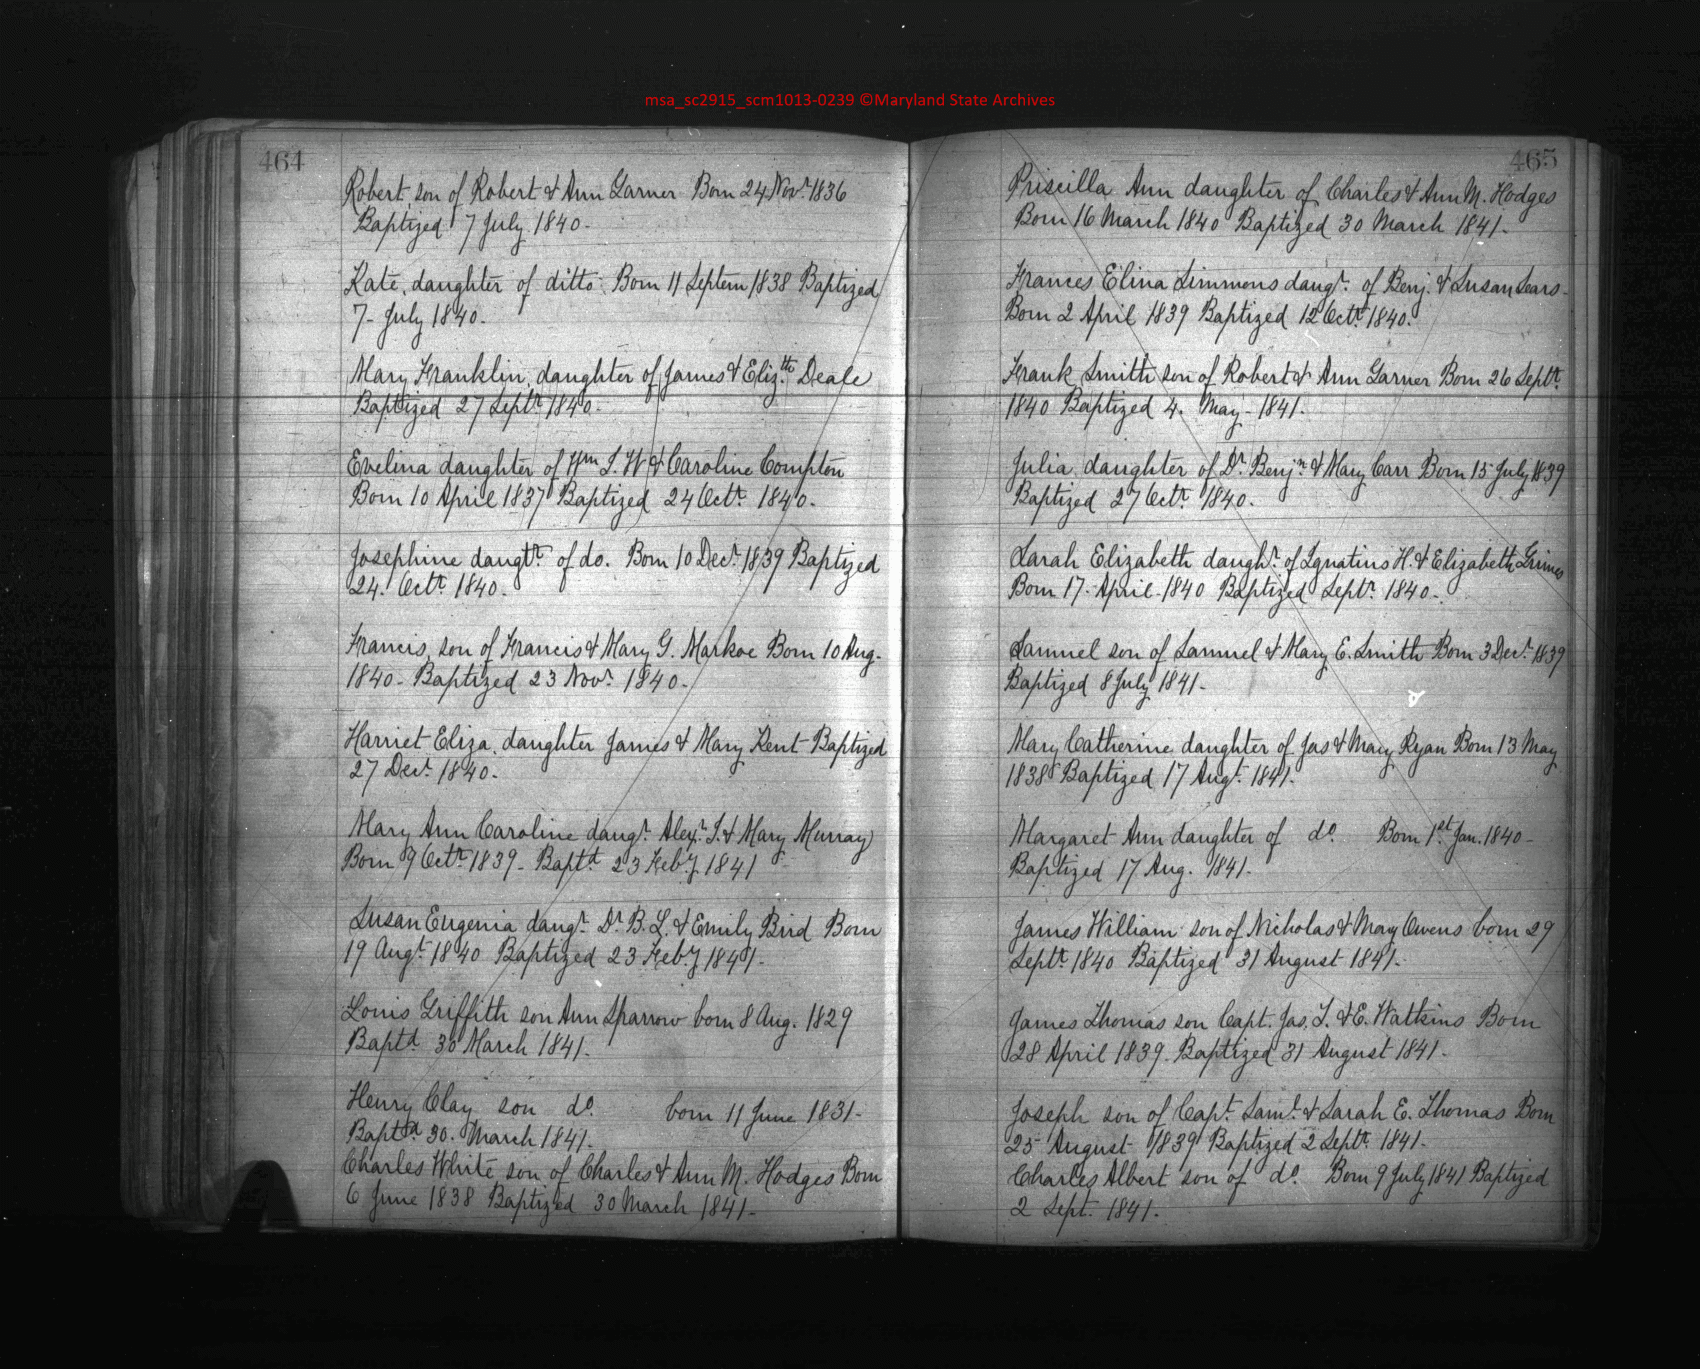 msa_sc2915_scm1013-0239 ©Maryland State Archives
464
Robert, son of Robert & Ann Garner Born 24 Novr 1836
Baptized 7 July 1840.
Kate, daughter of ditto. Born 11 Septem 1838 Baptized
7- July 1840.
Mary Franklin, daughter of James & Elizth Deale
Baptized 27 Septr 1840.
Evelina daughter of Wm S. W & Caroline Compton
Born 10 April 1837 Baptized 24 Octr 1840.
Josephine daugtr of do. Born 10 Decr 1839 Baptized
24. Octr 1840.
Francis, son of Francis & Mary G. Markoe Born 10 Aug.
1840. Baptized 23 Novr 1840.
Harriet Eliza, daughter James & Mary Kent Baptized
27 Decr 1840.
Mary Ann Caroline daugr Alexr S. & Mary Murray
Born 9 Octr 1839. Baptd 23 Feby 1841
Susan Eugenia daugr Dr B. L. & Emily Bird Born
19 Augt 1840 Baptized 23 Feby 1841.
Louis Griffith son Ann Sparrow born 8 Aug. 1829
Baptd 30 March 1841.
Henry Clay son do. born 11 June 1831.
Baptd 30. March 1841.
Charles White son of Charles & Ann M. Hodges Born
6 June 1838 Baptized 30 March 1841.
465
Priscilla Ann daughter of Charles & Ann M. Hodges
Born 16 March 1840 Baptized 30 March 1841.
Frances Elina Simmons daugr of Benj. & Susan Sears.
Born 2 April 1839 Baptized 12 Octr 1840.
Frank Smith son of Robert & Ann Garner Born 26 Septr
1840 Baptized 4. May. 1841.
Julia, daughter of Dr Benjn & Mary Carr Born 15 July 1839
Baptized 27 Octr 1840.
Sarah Elizabeth daughr of Ignatius H. & Elizabeth Grimes
Born 17. April. 1840 Baptized Septr 1840.
Samuel son of Samuel & Mary E. Smith Born 3 Decr 1839
Baptized 8 July 1841.
Mary Catherine daughter of Jas & Mary Ryan Born 13 May
1838 Baptized 17 Augt 1841.
Margaret Ann daughter of do. Born 1st Jan. 1840.
Baptized 17 Aug. 1841.
James William son of Nicholas & Mary Owens born 29
Septr 1840 Baptized 31 August 1841.
James Thomas son Capt. Jas. S. & E. Watkins Born
28 April 1839. Baptized 31 August 1841.
Joseph son of Capt. Saml & Sarah E. Thomas Born
25 August 1839 Baptized 2 Septr 1841.
Charles Albert son of do. Born 9 July 1841 Baptized
2 Sept. 1841.